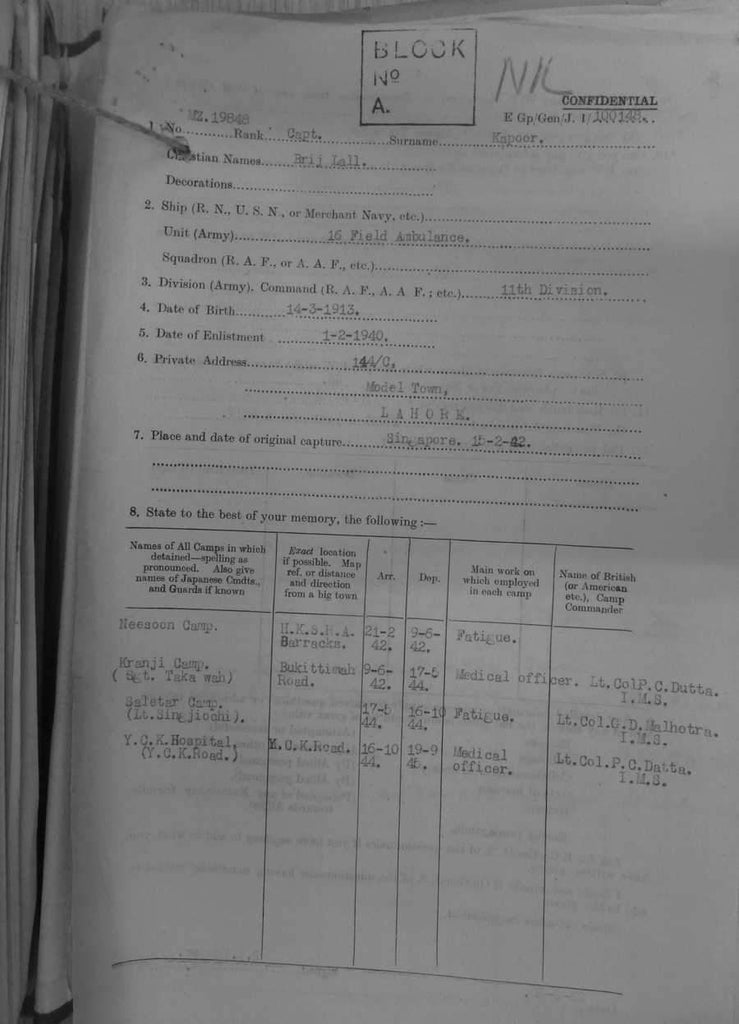 BLOCK
No
A.
NIL
CONFIDENTIAL
E Gp/Gen/J. 1/
1. No. MZ.19848 Rank Capt. Surname Kapoor.
Christian Names Brij Lall.
Decorations
2. Ship (R. N., U. S. N., or Merchant Navy, etc.)
Unit (Army) 16 Field Ambulance.
Squadron (R. A. F., or A. A. F., etc.)
3. Division (Army). Command (R. A. F., A. A F. ; etc.) 11th Division.
4. Date of Birth 14-3-1913.
5. Date of Enlistment 1-2-1940.
6. Private Address 144/C,
Model Town,
LAHORE.
7. Place and date of original capture Singapore. 15-2-42.
8. State to the best of your memory, the following :—
Names of All Camps in which detained—spelling as pronounced. Also give names of Japanese Cmdts., and Guards if known
Exact location if possible. Map ref. or distance and direction from a big town
Arr.
Dep.
Main work on which employed in each camp
Name of British (or American etc.), Camp Commander
Neesoon Camp. H.K.S.R.A. 21-2 9-6-
Barracks. 42. 42. Fatigue.
Kranji Camp. Bukittimah 9-6- 17-5 Medical officer. Lt.ColP.C.Dutta.
( Sgt. Taka wah) Road. 42. 44. I.M.S.
Saletar Camp. 17-5 16-10 Fatigue. Lt.Col.G.D.Malhotra.
(Lt.Singjiochi). 44. 44. I.M.S.
Y.C.K.Hospital, Y.C.K.Road. 16-10 19-9 Medical Lt.Col.P.C.Datta.
(Y.C.K.Road.) 44. 45. officer. I.M.S.